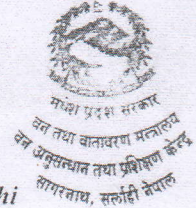 मधेश प्रदेश सरकार
वन तथा वातावरण मन्त्रालय
वन अनुसन्धान तथा प्रशिक्षण केन्द्र
सागरनाथ, सर्लाही नेपाल
hi